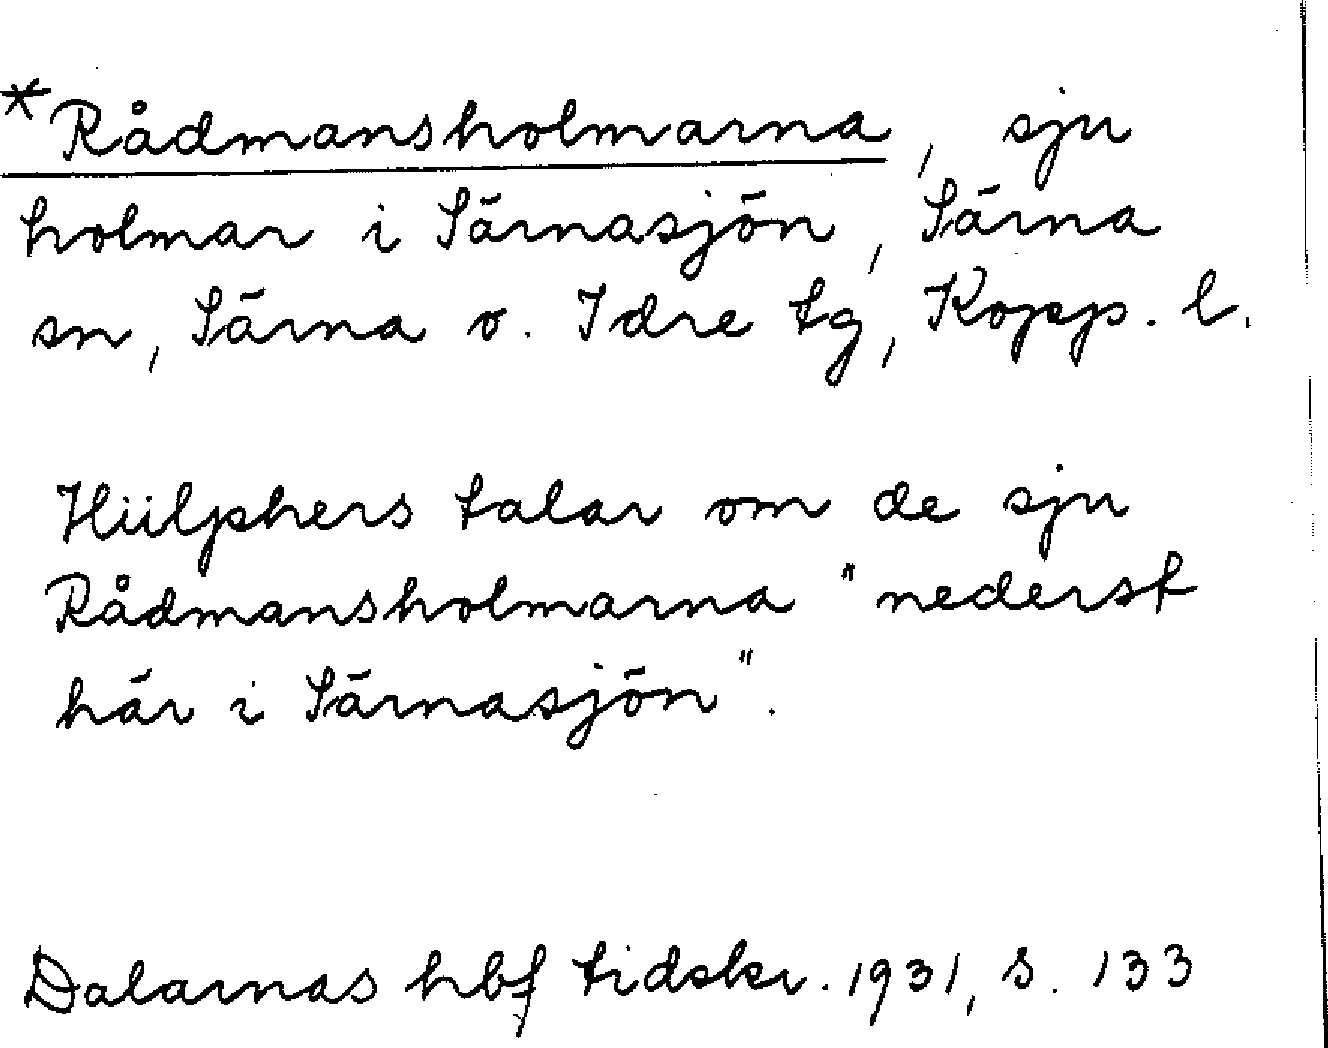 *Rådmansholmarna, sju
holmar i Särnasjön, Särna
sn, Särna o. Idre tg, Kopp. l.
Hülphers talar om de sju
Rådmansholmarna "nederst
här i Särnasjön".
Dalarnas hbf tidskr. 1931, s. 133